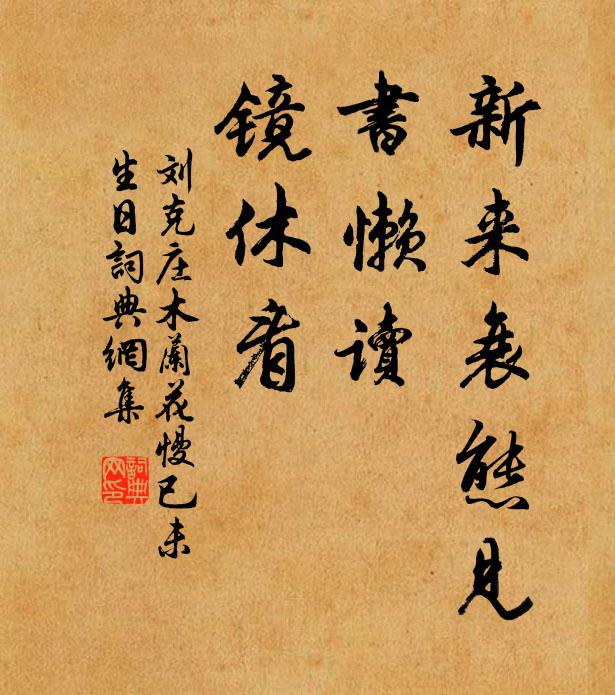 新来衰態見
書懶讀
鏡休看
刘克庄木蘭花慢己未
生日詞典網集
詞典
网印